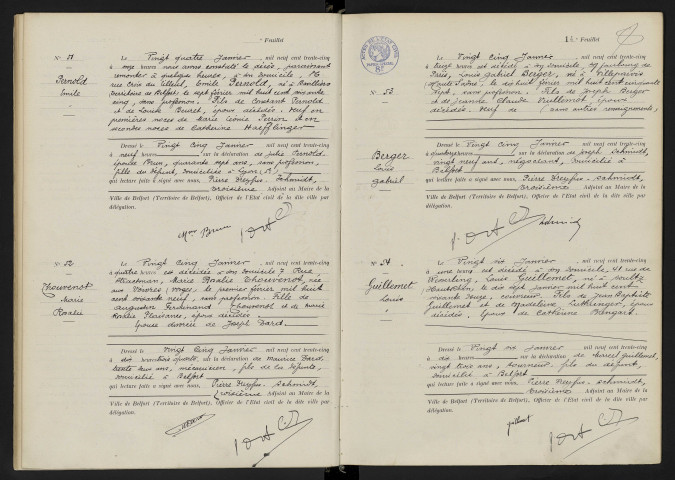 Feuillet
N° 51
Pernold
Emile
Le Vingt quatre Janvier mil neuf cent trente-cinq
à onze heures nous avons constaté le décès, paraissant
remonter à quelques heures, en son domicile
rue Croix du Tilleul, Emile Pernold, né à
territoire de Belfort le sept février mil huit cent soixante
cinq, sans profession. Fils de Constant Pernold
et de Louise époux décédés. Veuf en
premières noces de Marie Léonie Perrin et en
secondes noces de Catherine Haefflinger
Dressé le Vingt cinq Janvier, mil neuf cent trente-cinq
à neuf heures sur la déclaration de Julie Pernold
épouse Brun, quarante sept ans, sans profession,
fille du défunt, domiciliée à Lyon
qui lecture faite a signé avec nous, Pierre Dreyfus-Schmidt,
troisième Adjoint au Maire de la
Ville de Belfort (Territoire de Belfort), Officier de l'Etat Civil de la dite ville par
délégation.
Mme Brun
N° 52
Thouvenot
Marie
Rosalie
Le Vingt cinq Janvier, mil neuf cent trente-cinq
à quatre heures est décédée en son domicile 7 Rue
Strackman, Marie Rosalie Thouvenot, née
aux Voivres, Vosges, le premier février mil huit
cent soixante neuf, sans profession. Fille de
Augustin Ferdinand Thouvenot et de Marie
Rosalie époux décédés.
Epouse divorcée de Joseph Dard.
Dressé le Vingt cinq Janvier, mil neuf cent trente-cinq
à dix heures sur la déclaration de Maurice Dard,
trente deux ans, mécanicien, fils de la défunte,
domicilié à Belfort
qui lecture faite a signé avec nous, Pierre Dreyfus-Schmidt,
troisième Adjoint au Maire de la
Ville de Belfort (Territoire de Belfort), Officier de l'Etat Civil de la dite ville par
délégation.
14 Feuillet
N° 53
Berger
Louis
Gabriel
Le Vingt cinq Janvier, mil neuf cent trente-cinq
est décédé en son domicile, faubourg de
Paris, Louis Gabriel Berger, né à Villeparois
Haute Saône, le dix huit février mil huit cent cinquante
sept, sans profession. Fils de Joseph Berger
et de Jeanne Claude Vuillemot, époux
décédés. Veuf de (sans autres renseignements)
Dressé le Vingt cinq Janvier, mil neuf cent trente-cinq
à quatorze heures sur la déclaration de Joseph Schmidt,
vingt neuf ans, négociant, domicilié à
Belfort
qui lecture faite a signé avec nous, Pierre Dreyfus-Schmidt,
troisième Adjoint au Maire de la
Ville de Belfort (Territoire de Belfort), Officier de l'Etat Civil de la dite ville par
délégation.
Schmidt
N° 54
Guillemet
Louis
Le Vingt six Janvier, mil neuf cent trente-cinq
à une heure est décédé en son domicile, 41 rue de
Wesserling, Louis Guillemet, né à Soultz
Haut-Rhin, le dix sept janvier mil huit cent
soixante douze, couvreur. Fils de Jean Baptiste
Guillemet et de Madeleine époux
décédés. Epoux de Catherine Bangard
Dressé le Vingt six Janvier, mil neuf cent trente-cinq
à dix heures sur la déclaration de Marcel Guillemet,
vingt trois ans, tourneur, fils du défunt,
domicilié à Belfort
qui lecture faite a signé avec nous, Pierre Dreyfus-Schmidt,
troisième Adjoint au Maire de la
Ville de Belfort (Territoire de Belfort), Officier de l'Etat Civil de la dite ville par
délégation.